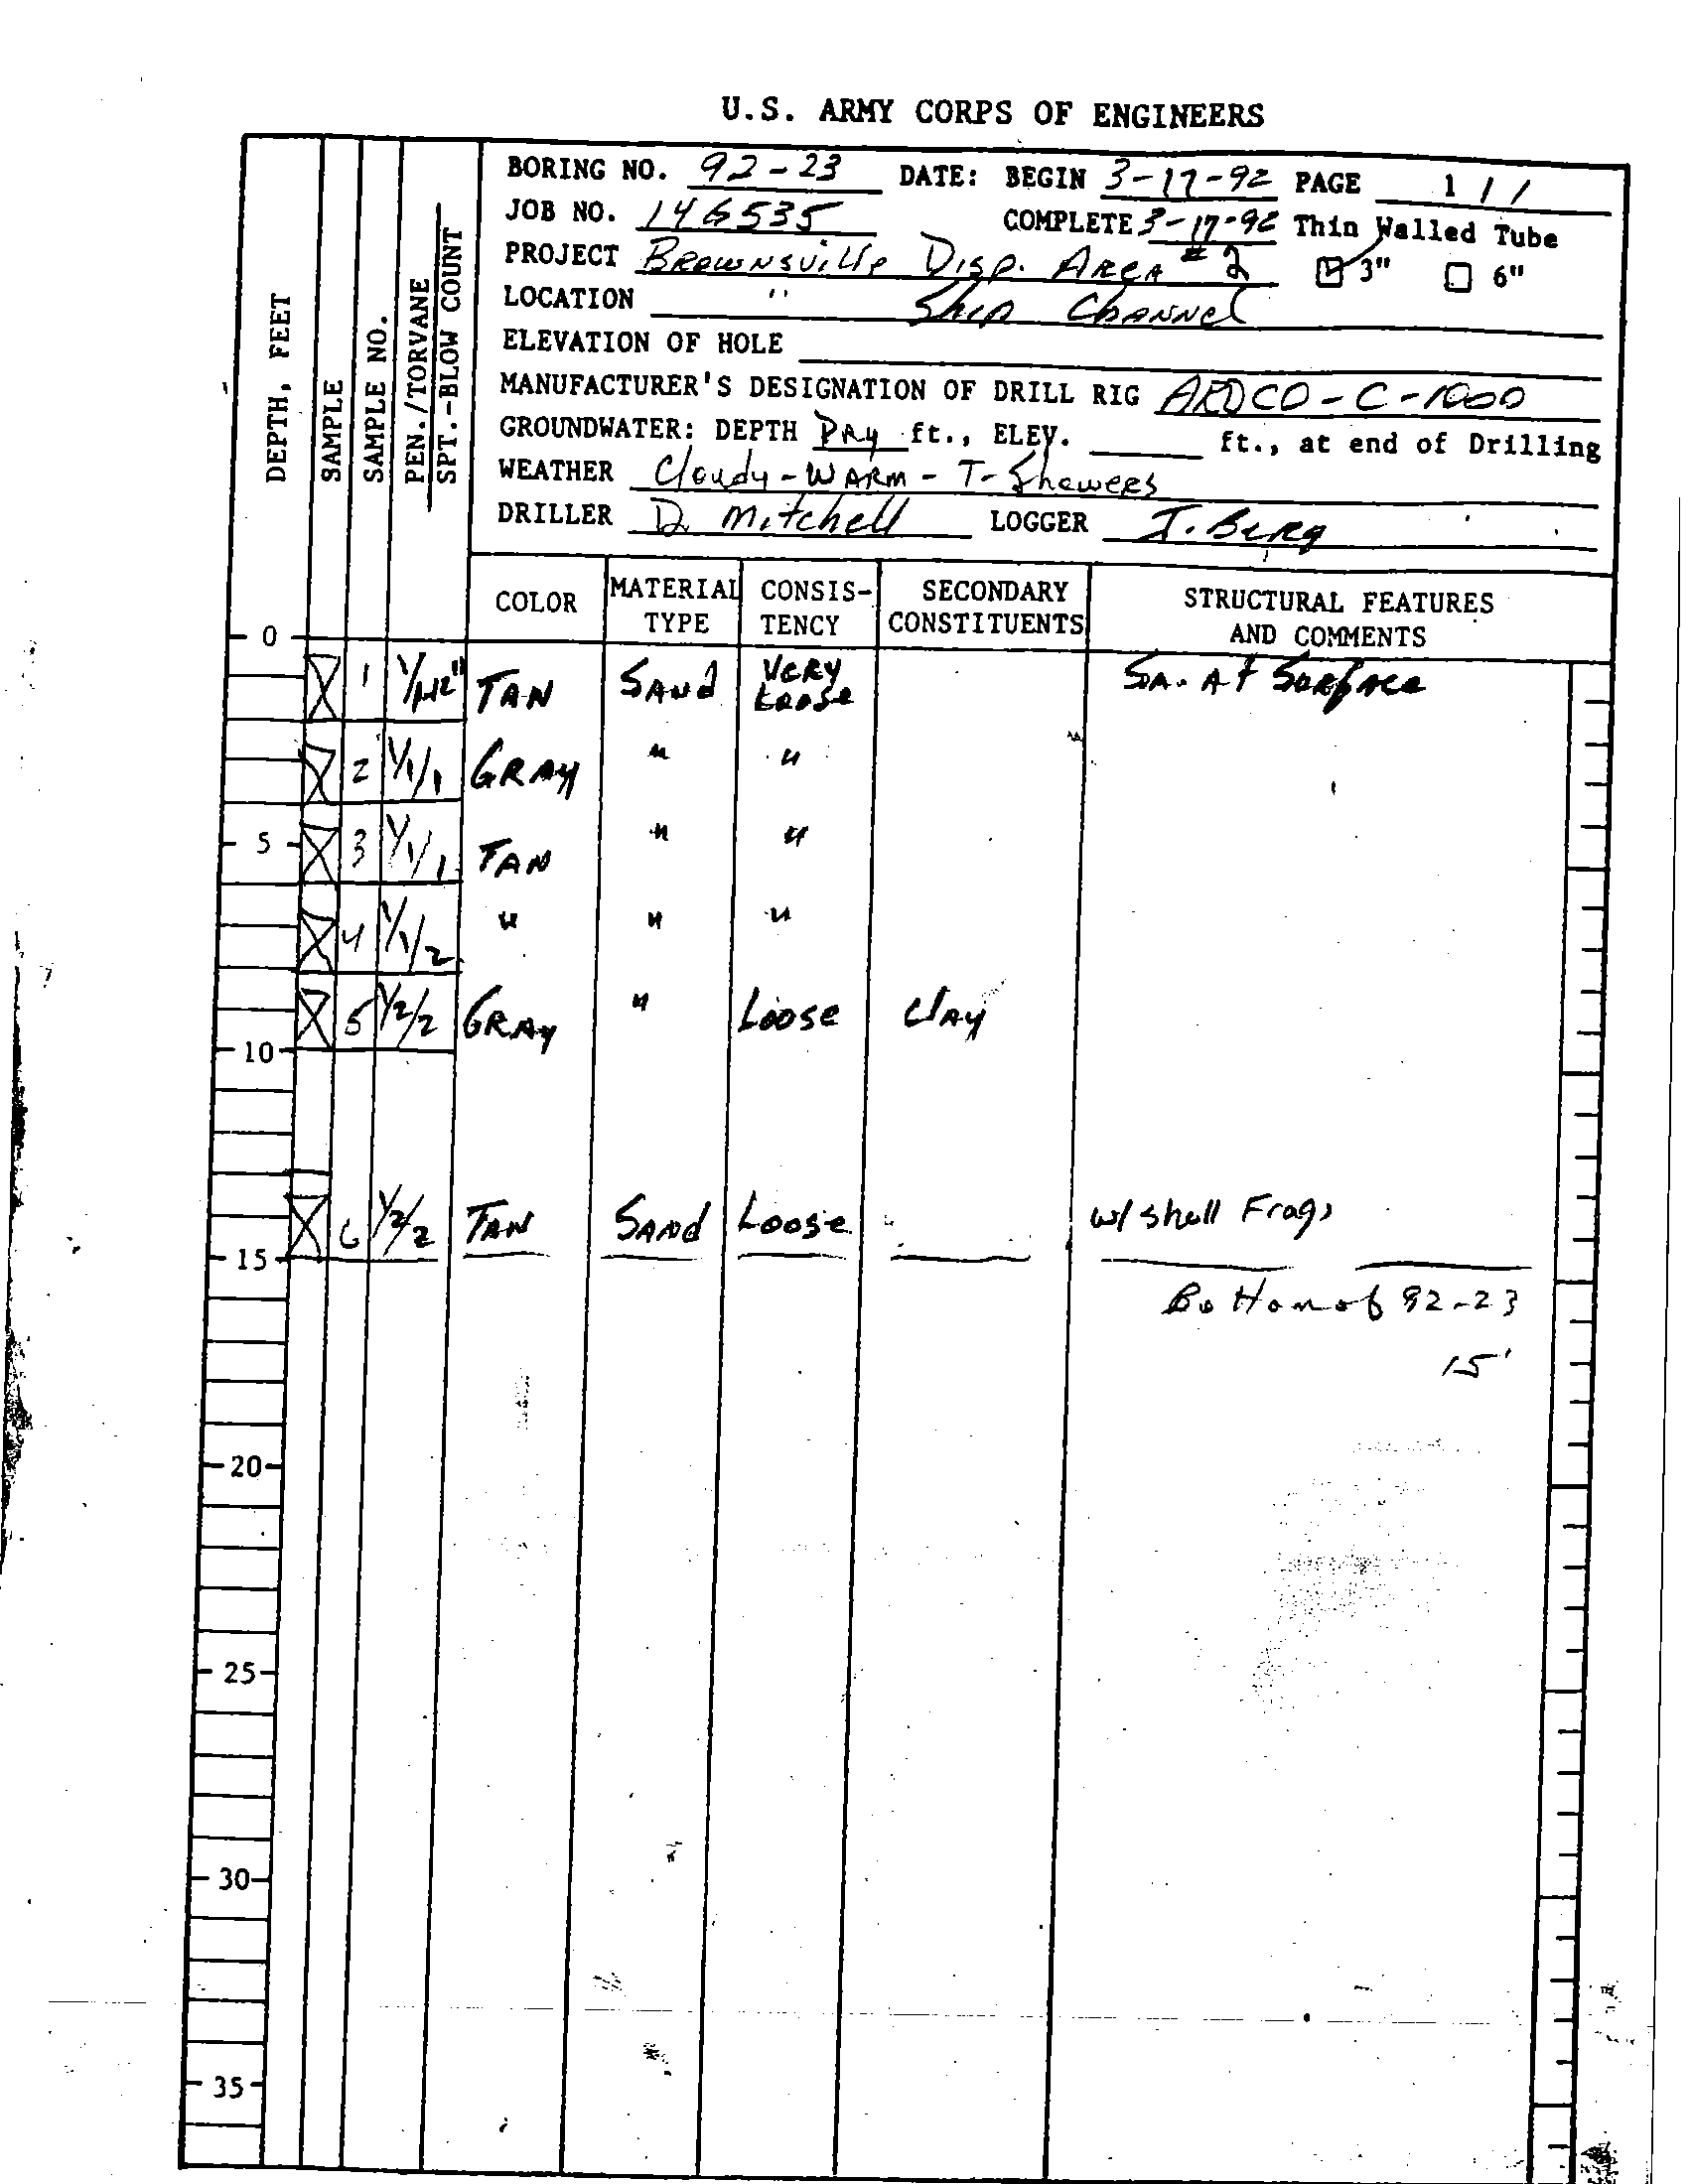 U.S. ARMY CORPS OF ENGINEERS
BORING NO. 92-23 DATE: BEGIN 3-17-92 PAGE 1 / 1
JOB NO. 146535 COMPLETE 3-17-92 Thin Walled Tube
PROJECT Brownsville Disp. Area #2 3" 6"
LOCATION " Ship Channel
ELEVATION OF HOLE
MANUFACTURER'S DESIGNATION OF DRILL RIG ARDCO-C-1000
GROUNDWATER: DEPTH DRy ft., ELEV. ft., at end of Drilling
WEATHER Cloudy - WARM - T-Showers
DRILLER D. Mitchell LOGGER J. Berg
DEPTH, FEET
SAMPLE
SAMPLE NO.
PEN./TORVANE
SPT.-BLOW COUNT
COLOR MATERIAL TYPE CONSIS-TENCY SECONDARY CONSTITUENTS STRUCTURAL FEATURES AND COMMENTS
0
1 TAN SAnd VERY Loose SA. At Surface
2 1/1/1 GRAY " "
5 3 1/1/1 TAN " "
4 1/1/2 " " "
5 1/2/2 GRAY " Loose clay
10
6 1/2/2 TAN SANd Loose w/ shell Frags
15
Bottom of 92-23
15'
20
25
30
35